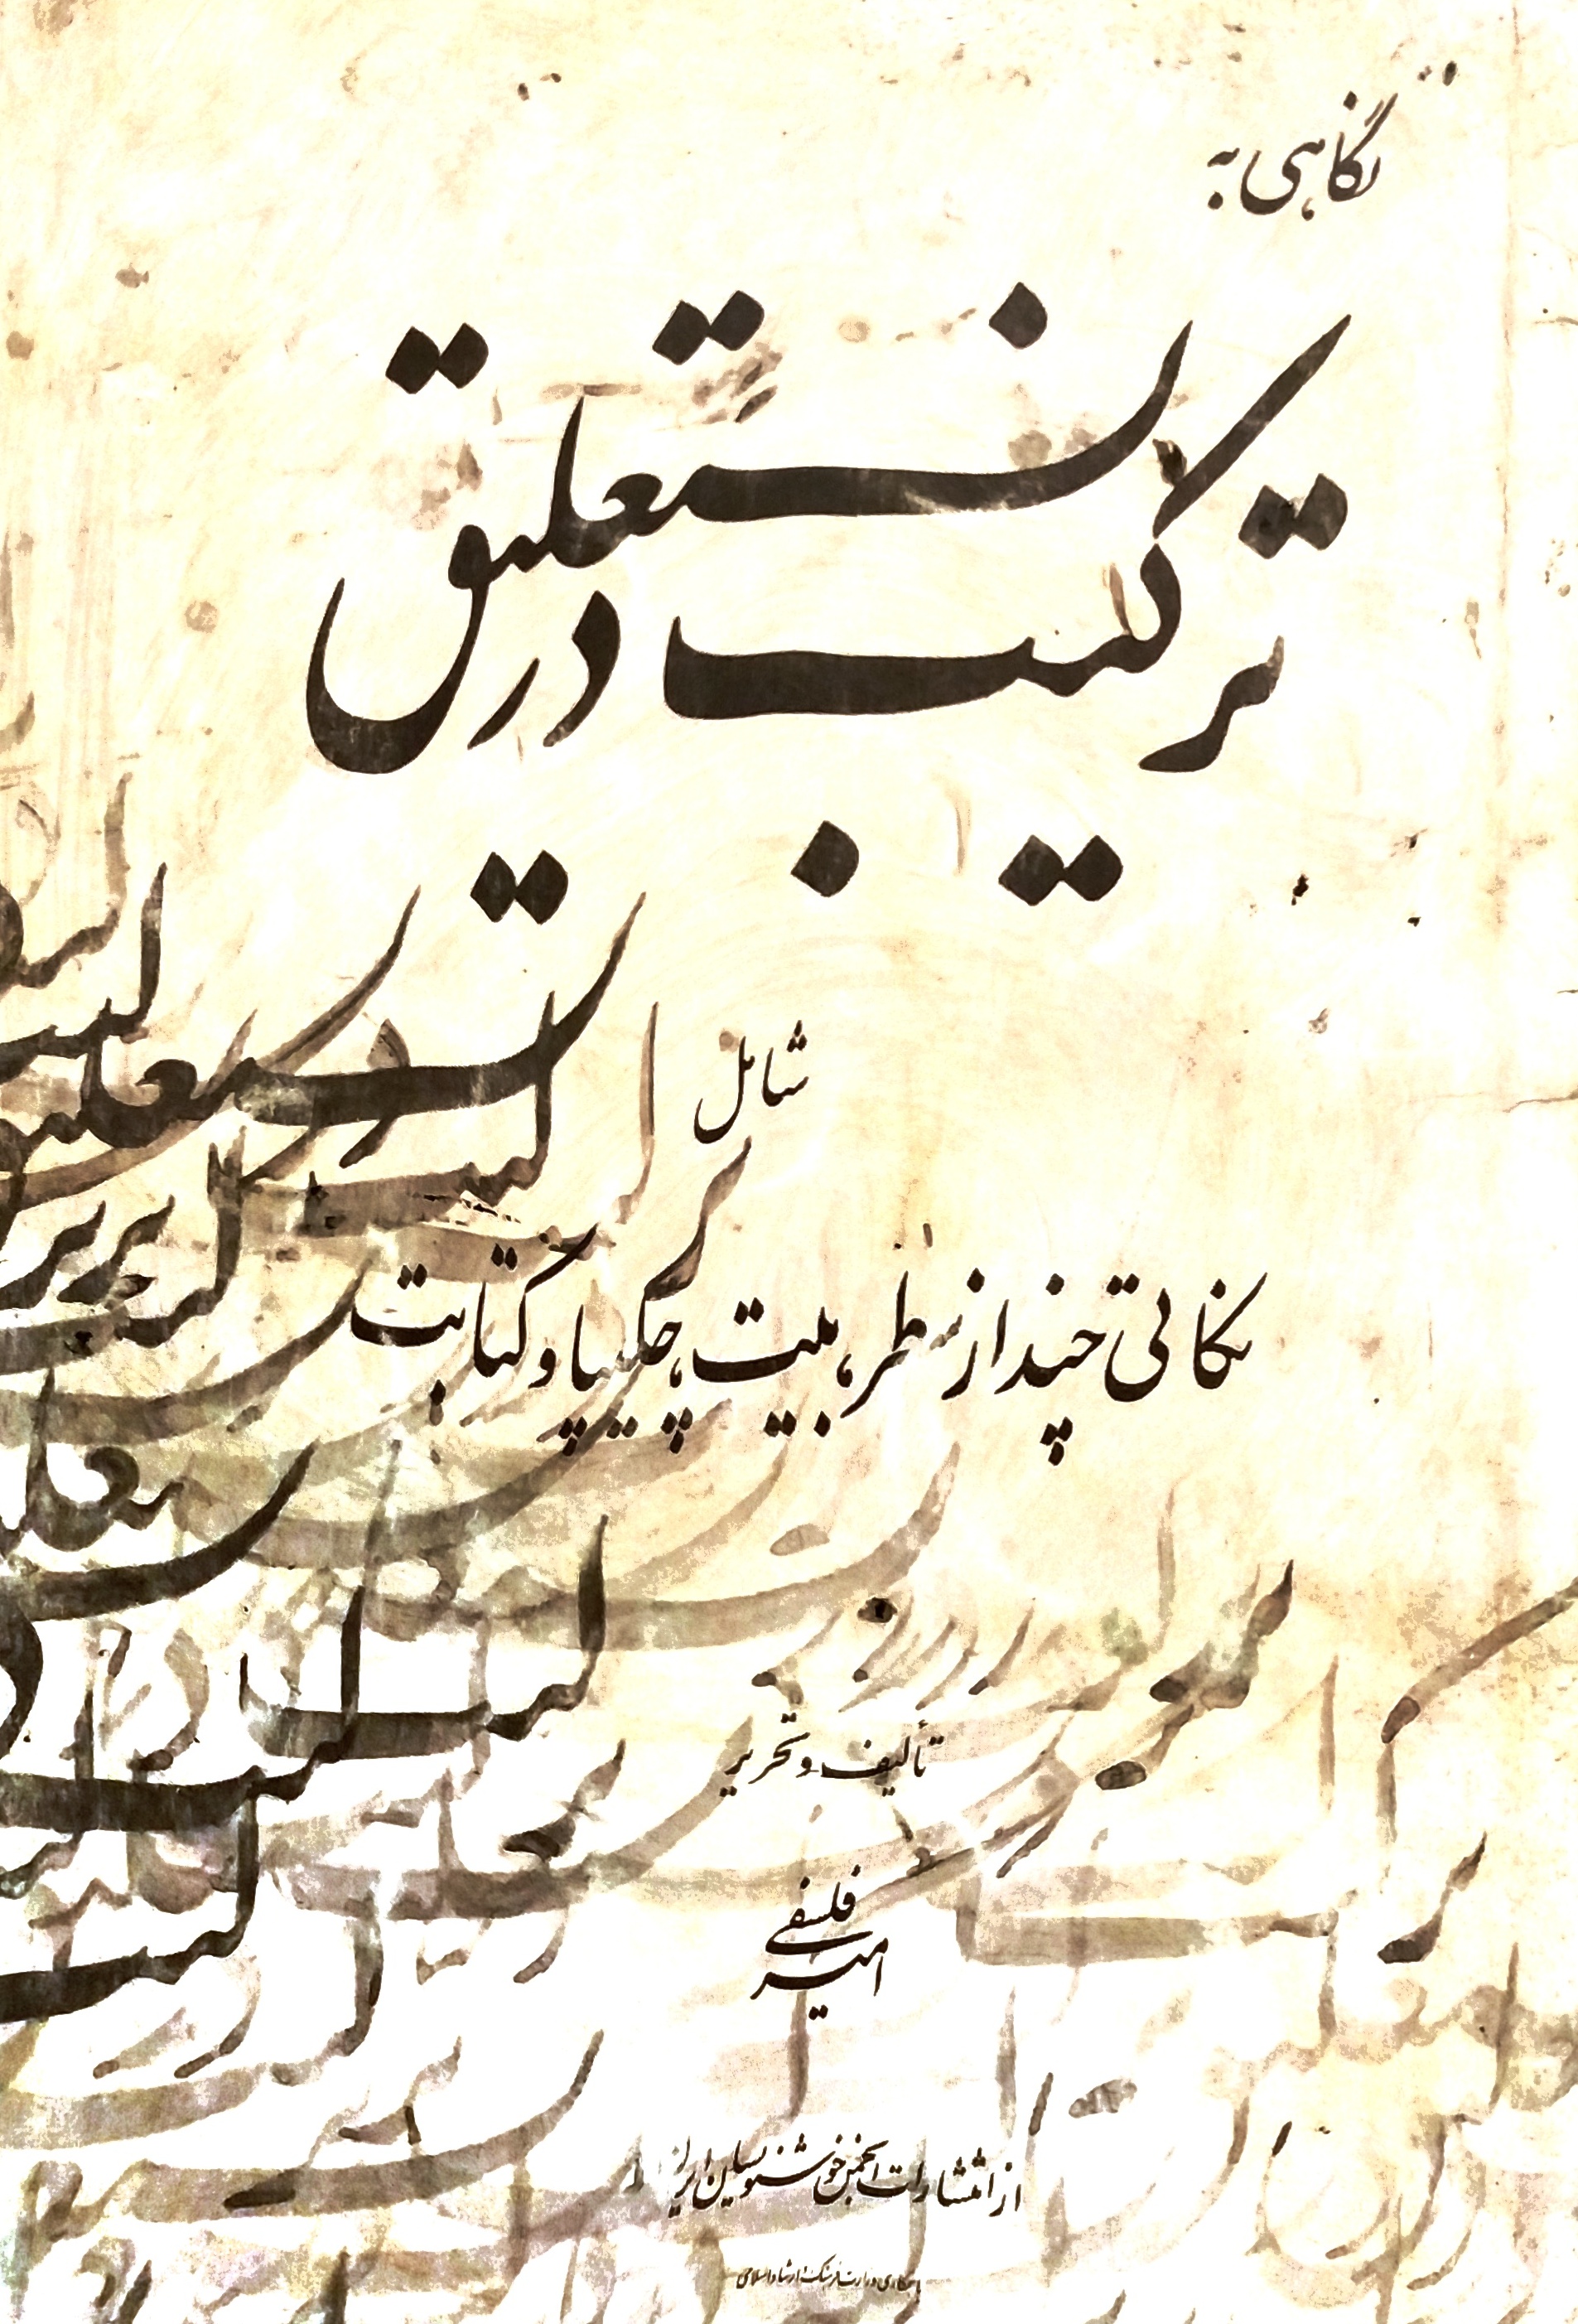 نگاهی به
ترکیب در نستعلیق
شامل
نکاتی چند از سطر، بیت، چلیپا و کتابت
تألیف و تحریر
امیر فلسفی
از انتشارات انجمن خوشنویسان ایران
با همکاری وزارت فرهنگ و ارشاد اسلامی